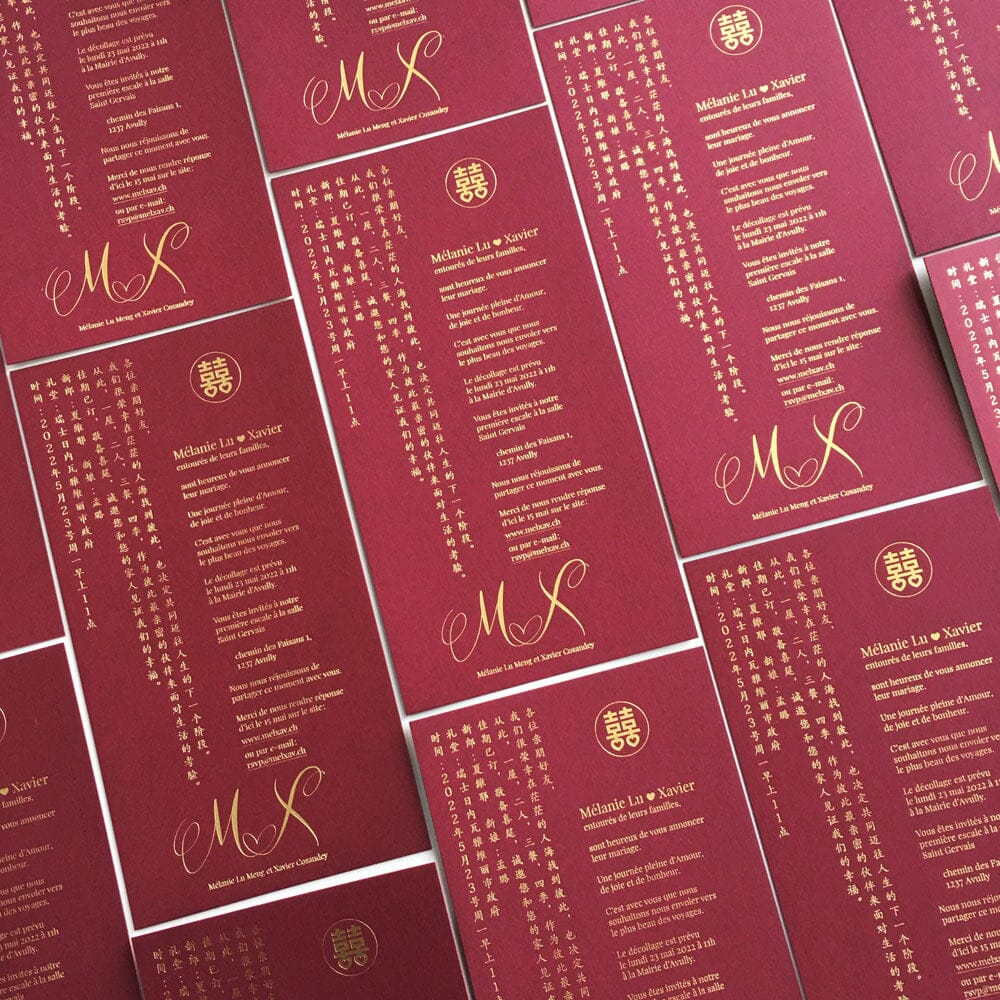 囍
各位亲朋好友，
我们很荣幸在茫茫的人海找到彼此，也决定共同迈往人生的下一个阶段。
从此，一屋，二人，三餐，四季，作为彼此最亲密的伙伴来面对生活的考验。
佳期已订，敬备喜筵，诚邀您和您的家人见证我们的幸福。
新郎：夏维耶 新娘：孟璐
礼堂：瑞士日内瓦雅维丽市政府
时间：2022年5月23号周一早上11点
Mélanie Lu ♥ Xavier
entourés de leurs familles,
sont heureux de vous annoncer
leur mariage.
Une journée pleine d'Amour,
de joie et de bonheur.
C'est avec vous que nous
souhaitons nous envoler vers
le plus beau des voyages.
Le décollage est prévu
le lundi 23 mai 2022 à 11h
à la Mairie d'Avully.
Vous êtes invités à notre
première escale à la salle
Saint Gervais
chemin des Faisans 1,
1237 Avully
Nous nous réjouissons de
partager ce moment avec vous.
Merci de nous rendre réponse
d'ici le 15 mai sur le site :
www.melxav.ch
ou par e-mail :
rsvp@melxav.ch
M X
Mélanie Lu Meng et Xavier Cosandey